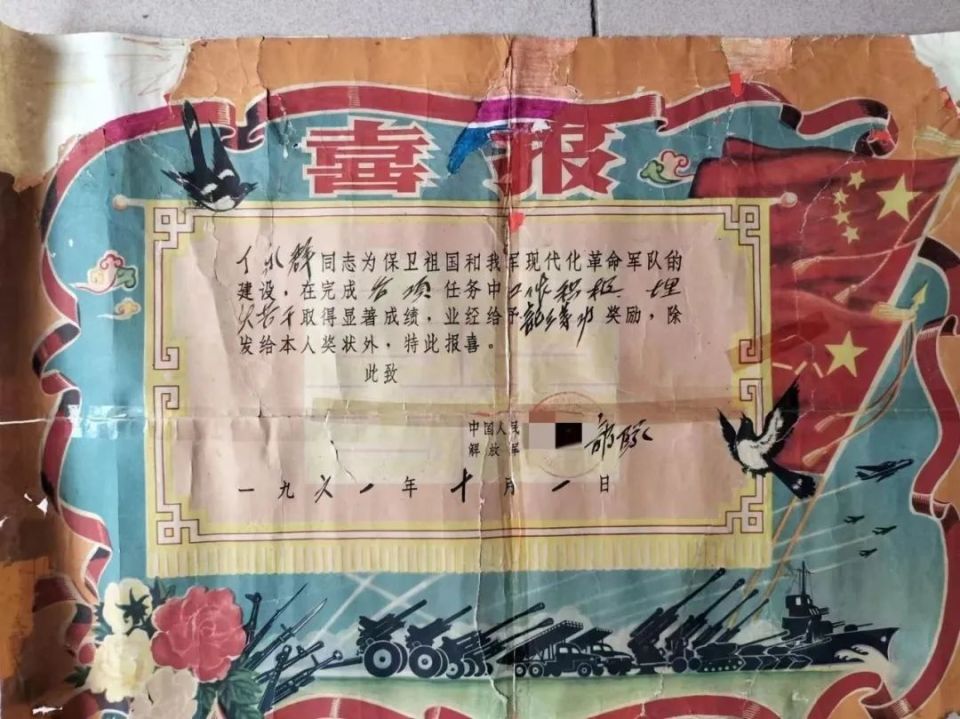 喜报
丁永群同志为保卫祖国和我军现代化革命军队的
建设，在完成各项任务中工作积极、埋
头苦干取得显著成绩，业经给予 奖励，除
发给本人奖状外，特此报喜。
此致
中国人民
解放军
一九六一年十月一日
八一